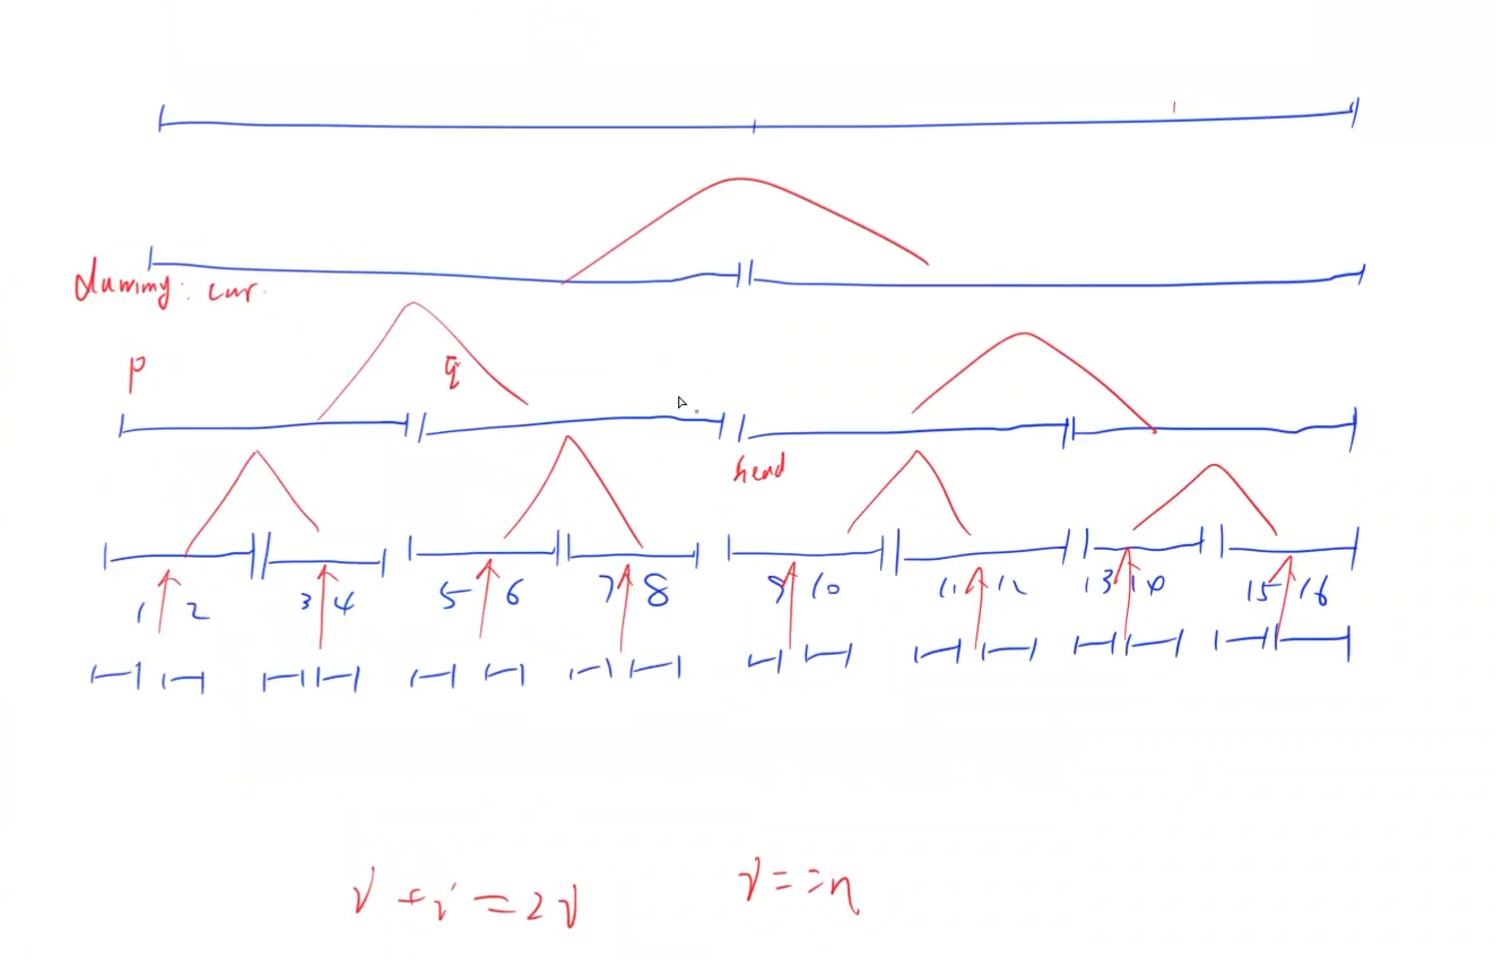 dummy: cur.
p
q
head
1 2 3 4 5 6 7 8 9 10 11 12 13 14 15 16